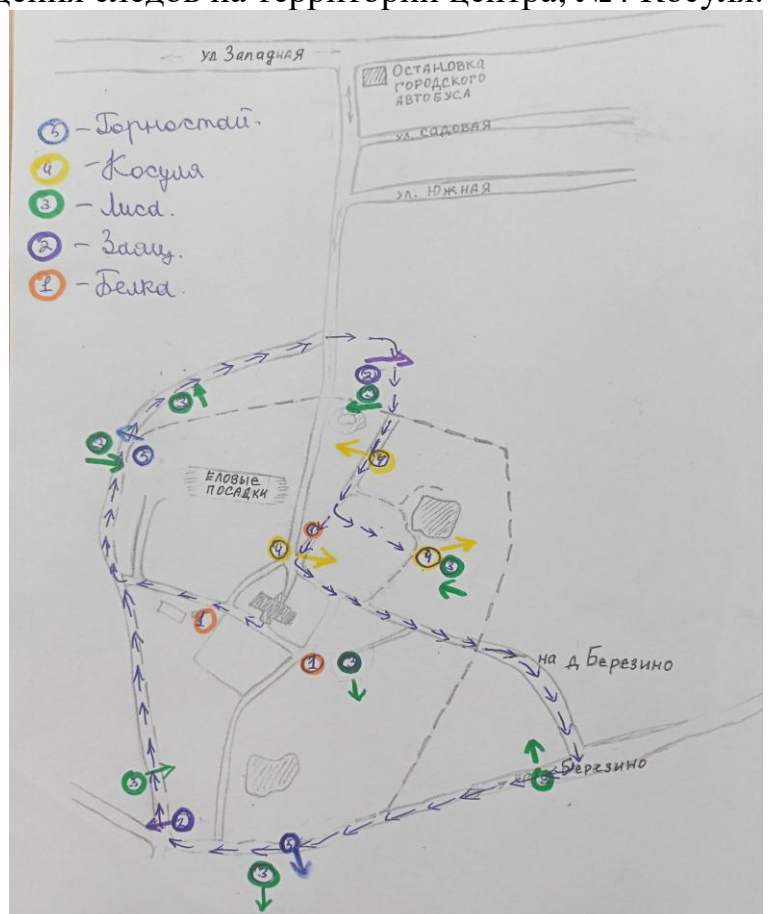 дения следов на территории центра, №4 Косуля.
ул Западная
Остановка
городского
автобуса
ул. Садовая
ул. Южная
5 - Горностай.
4 - Косуля
3 - Лиса.
2 - Заяц.
1 - Белка.
2
3
3
3
5
4
Еловые
посадки
1
4
4
3
1
1
на д Березино
3
Березино
3
2
5
3